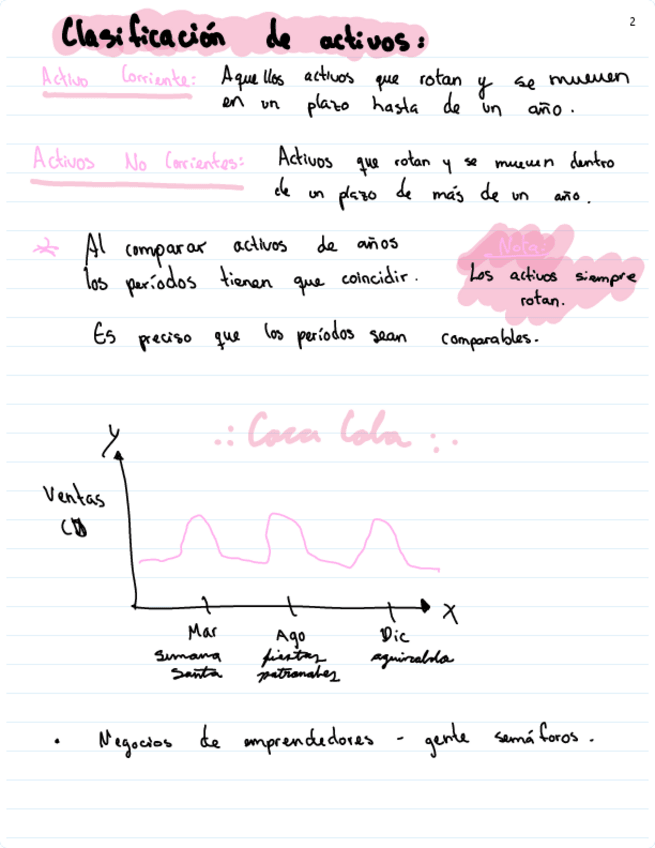 2
Clasificación de activos:
Activo Corriente: Aquellos activos que rotan y se mueven
en un plazo hasta de un año.
Activos No Corrientes: Activos que rotan y se mueven dentro
de un plazo de más de un año.
* Al comparar activos de años
los períodos tienen que coincidir.
Es preciso que los períodos sean comparables.
Nota:
Los activos siempre
rotan.
.: Coca Cola :.
Y
Ventas
X
Mar
semana
santa
Ago
fiestas
patronales
Dic
aguinaldo
• Negocios de emprendedores - gente semáforos.